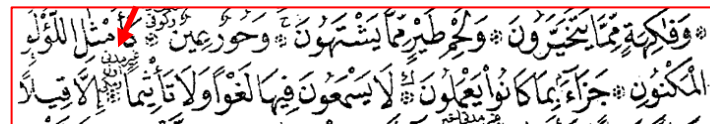 ۞ وَفَاكِهَةٍ مِمَّا يَتَخَيَّرُونَ ۞ وَلَحْمِ طَيْرٍ مِمَّا يَشْتَهُونَ ۞ وَحُورٌ عِينٌ ۞ كَأَمْثَالِ اللُّؤْلُؤِ
الْمَكْنُونِ ۞ جَزَاءً بِمَا كَانُوا يَعْمَلُونَ ۞ لَا يَسْمَعُونَ فِيهَا لَغْوًا وَلَا تَأْثِيمًا ۞ إِلَّا قِيلًا